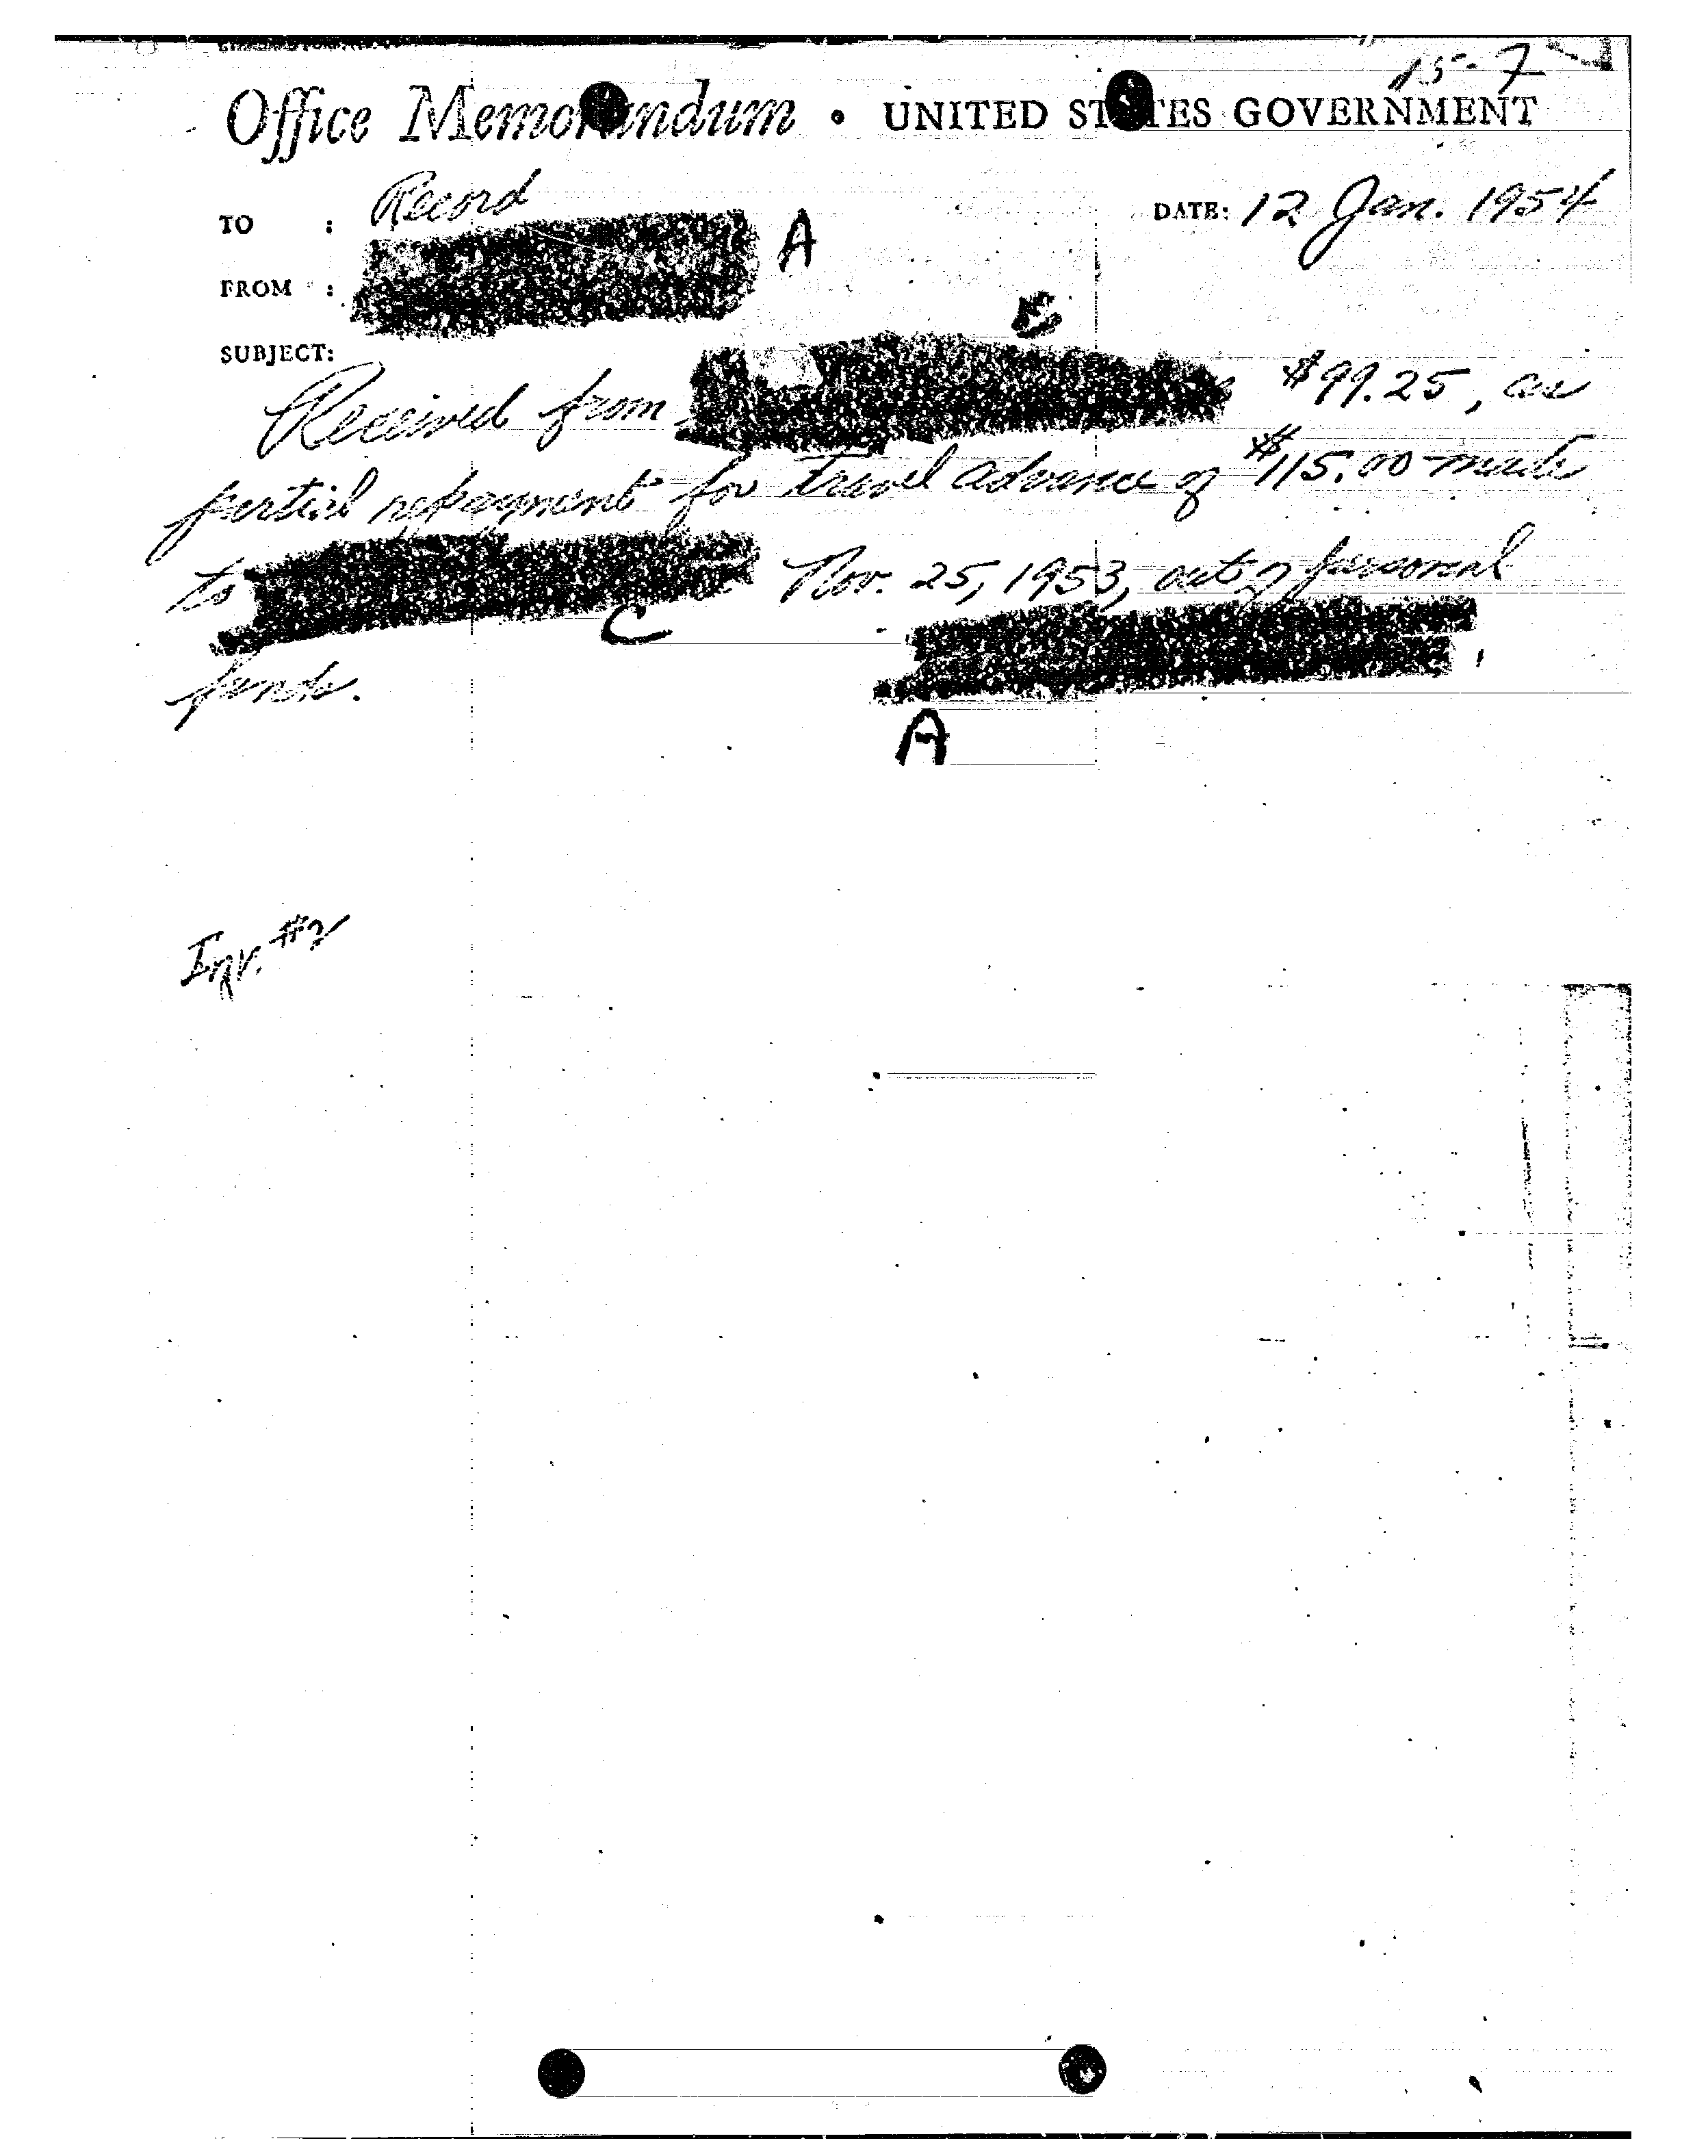 15-7
Office Memorandum • UNITED STATES GOVERNMENT
TO : Record
DATE: 12 Jan. 1954
A
FROM :
E
SUBJECT:
Received from $99.25, as
partial repayment for travel advance of $115.00 made
to Nov. 25, 1953, out of personal
C
funds.
A
Inv. #2